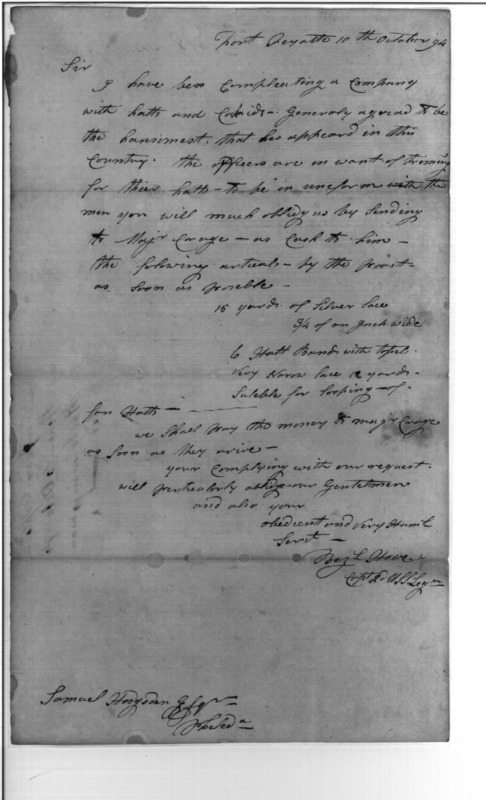 Fort Fayatte 10th October 94
Sir
I have ben Compleating a Company
with hatts and Cokaids - Generaly agread to be
the hansomest. that has appeard in this
Country. the officers are in want of triming
for thier hatts - to be in uneform with the
men you will much oblidg us by Sending
to Majr Crage - as Cash to him -
the folowing articals - by the poast -
as soon as poseble -
15 yards of Silver lace
3/4 of an Inch wide
6 Hatt Bands with tosel.
very Narow lace 12 yards -
Suteble for looping - of -
four Hatts -
we Shall pay the money to magr Crage
as soon as they arive -
your Complying with our request.
will perticularly oblidg our Gentelmen
and also your
obedient and very Huml
Servt -
Bezl Howe
Capt 2d U S Legn
Samuel Hodgsdon Esqr
Philada